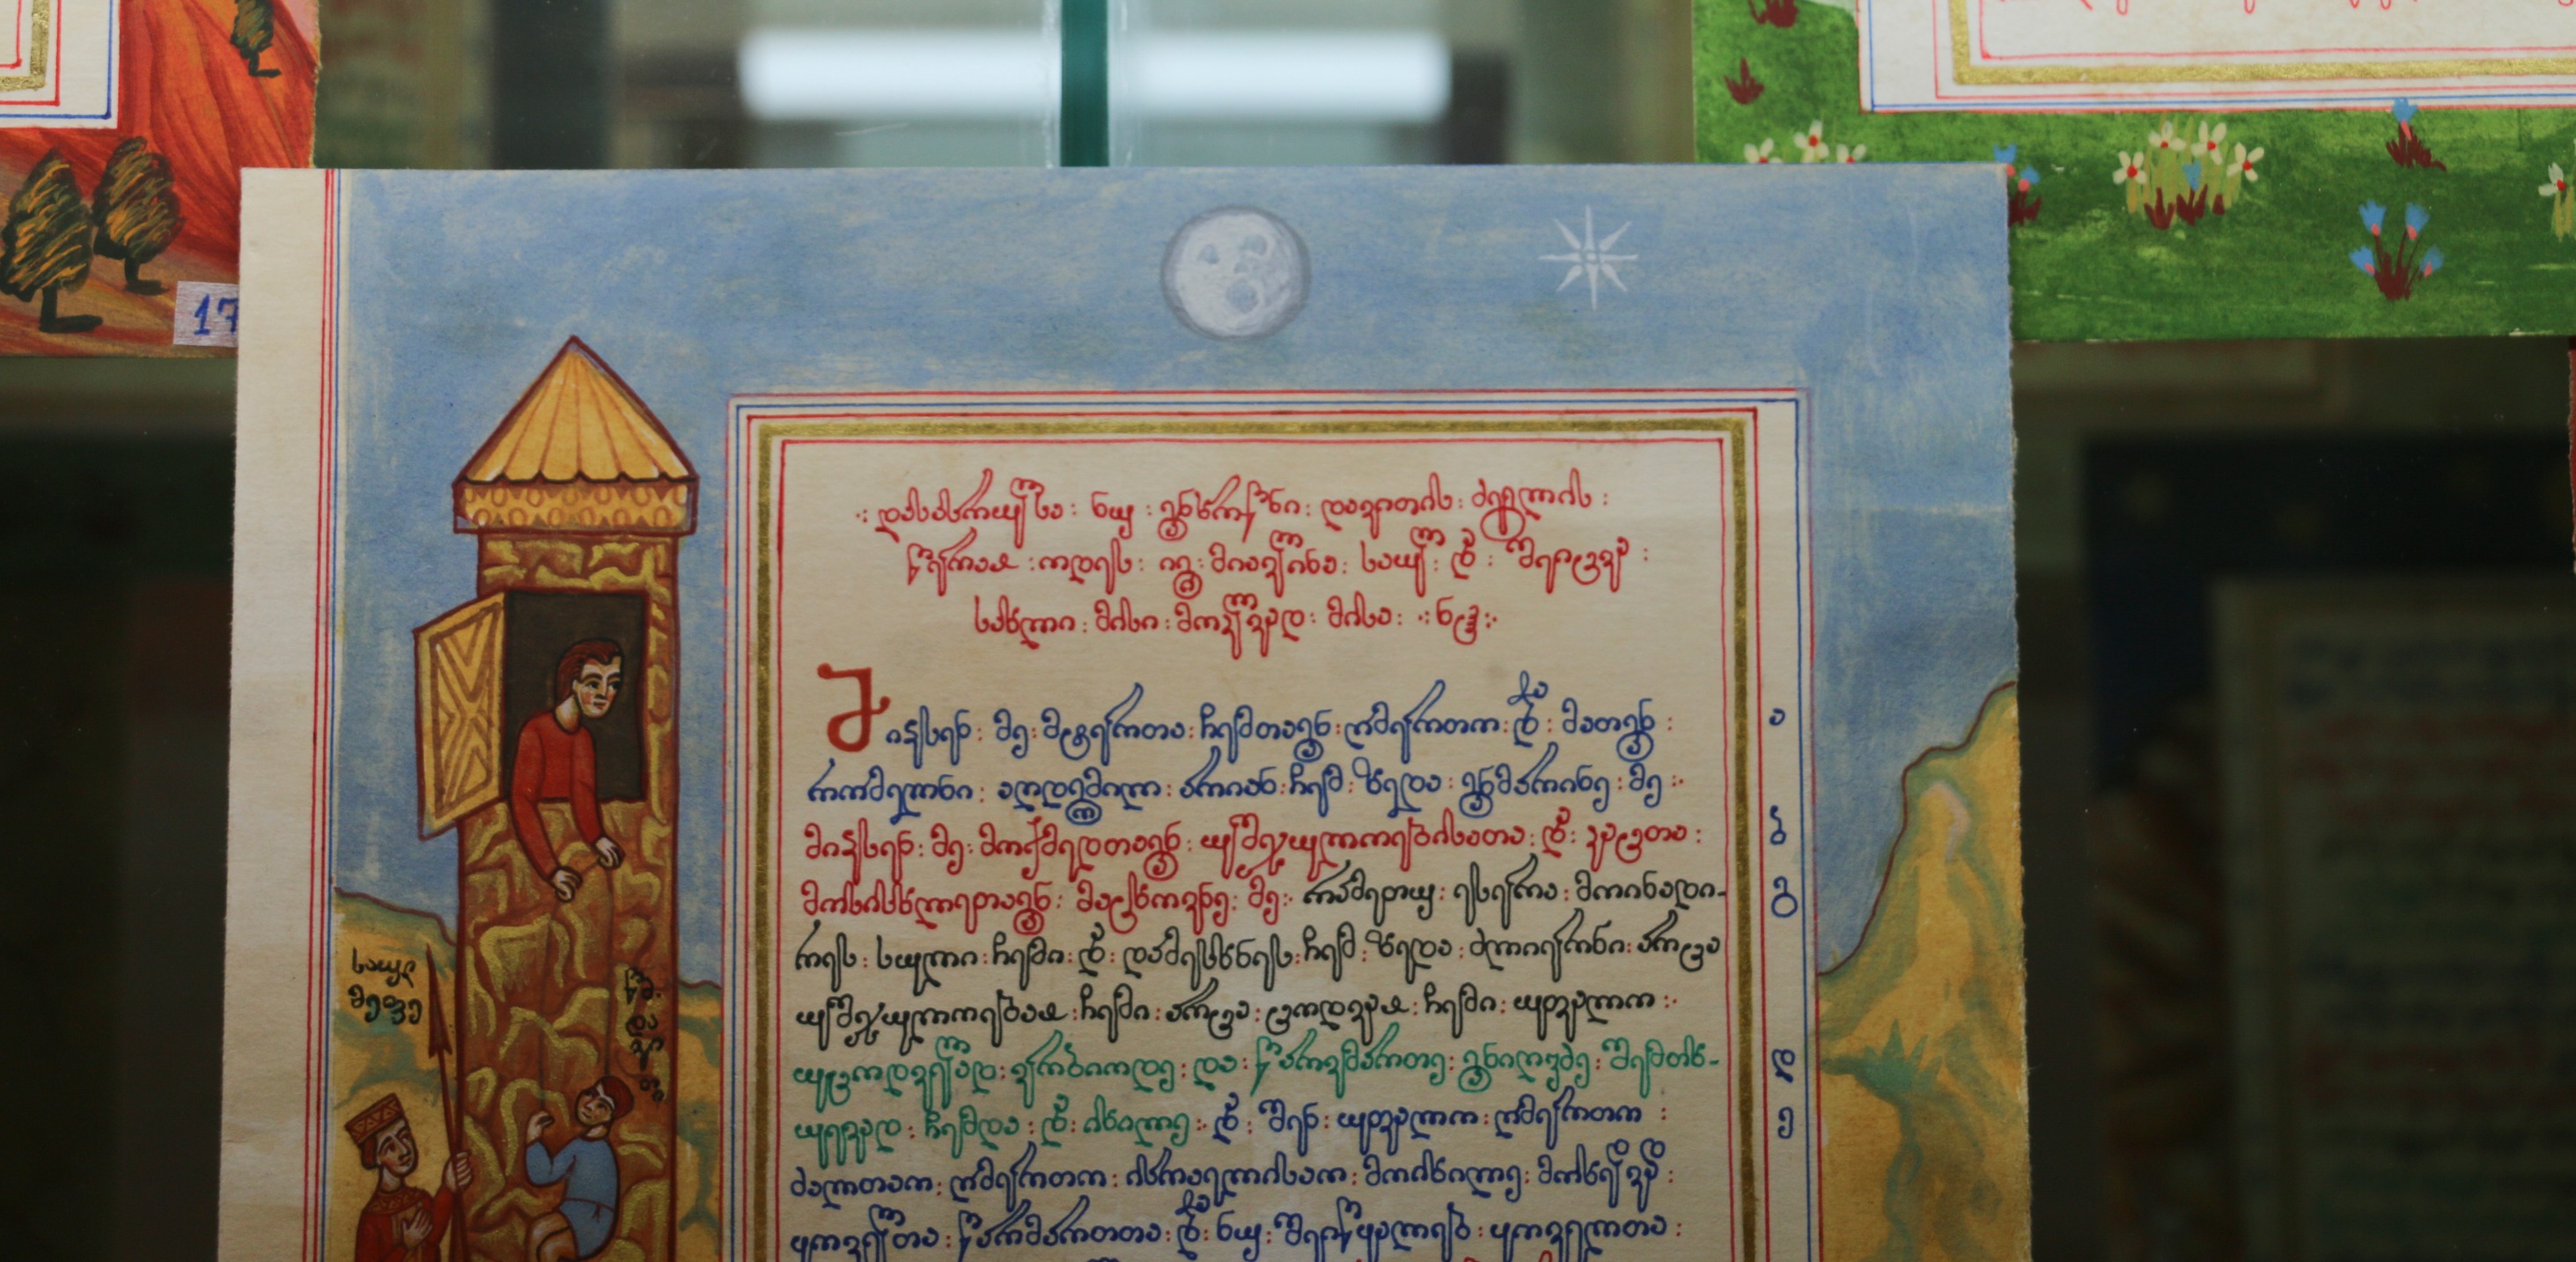 17
·: დასასრულსა : ნუ : განხრწნი : დავითის : ძეგლის :
წერაჲ : ოდეს : იგი : მიავლინა : საულ : და : შეიცვა :
სახლი : მისი : მოკლვად : მისა : ·: ნჱ :·
მიჴსენ : მე : მტერთა : ჩემთაგან : ღმერთო : და : მათგან : ა
რომელნი : აღდგომილ : არიან : ჩემ : ზედა : განმარინე : მე :·
მიჴსენ : მე : მოქმედთაგან : უშჯულოებისათა : და : კაცთა : ბ
მოსისხლეთაგან : მაცხოვნე : მე :· რამეთუ : ესერა : მოინადი- გ
რეს : სული : ჩემი : და : დამესხნეს : ჩემ : ზედა : ძლიერნი : არცა
უშჯულოებაჲ : ჩემი : არცა : ცოდვაჲ : ჩემი : უფალო :·
უცოდველად : ვრბიოდე : და : წარვემართე : განიღვძე : შემთხ- დ
უევად : ჩემდა : და : იხილე :· და : შენ : უფალო : ღმერთო : ე
ძალთაო : ღმერთო : ისრაელისაო : მოიხილე : მოხედვად :
ყოველთა : წარმართთა : და : ნუ : შეიწყალებ : ყოველთა :
საულ
მეფე
წმ.
დავით